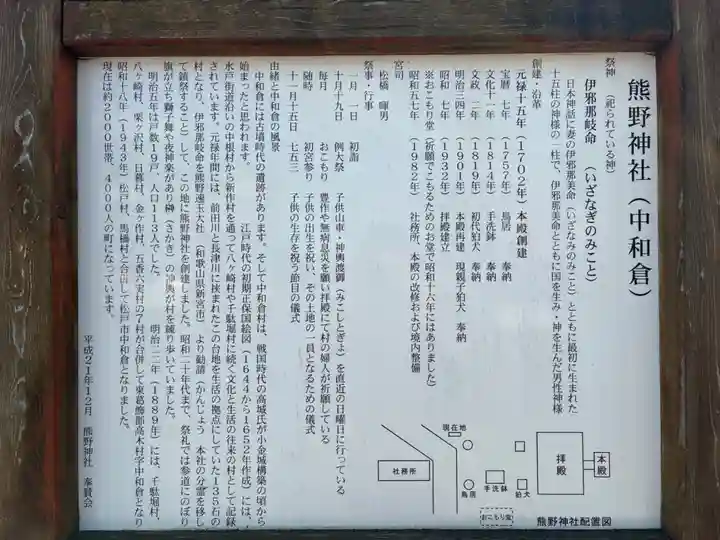 熊野神社(中和倉)
祭神 (祀られている神)
伊邪那岐命 (いざなぎのみこと)
日本神話に妻の伊邪那美命(いざなみのみこと)とともに最初に生まれた
十五柱の神様の一柱で、伊邪那美命とともに国を生み・神を生んだ男性神様
創建・沿革
元禄十五年(1702年)本殿創建
宝暦 七年 (1757年) 鳥居 奉納
文化十一年 (1814年) 手洗鉢 奉納
文政 二年 (1819年) 初代狛犬 奉納
明治三四年 (1901年) 本殿再建 現親子狛犬 奉納
昭和 七年 (1932年) 拝殿建立
※おこもり堂(祈願でこもるためのお堂で昭和十六年にはありました)
昭和五七年 (1982年) 社務所、本殿の改修および境内整備
宮司
松橋 暉男
祭事・行事
一月 一日 初詣
十月十九日 例大祭 子供山車・神輿渡御(みこしとぎょ)を直近の日曜日に行っている
毎月 おこもり 豊作や無病息災を願い拝殿にて村の婦人が祈願している
随時 初宮参り 子供の出生を祝い、その土地の一員となるための儀式
十一月十五日 七五三 子供の生存を祝う節目の儀式
由緒と中和倉の風景
中和倉には古墳時代の遺跡があります。そして中和倉村は、戦国時代の高城氏が小金城構築の頃から
始まったと思われます。 江戸時代の初期正保国絵図(1644から1652年作成)には、
水戸街道沿いの中根村から新作村を通って八ヶ崎村や千駄堀村に続く文化と生活の往来の村として記録
されています。元禄年間には、前田川と長津川に挟まれたこの台地を生活の拠点にしていた135石の
村となり、伊邪那岐命を熊野速玉大社 (和歌山県新宮市)より勧請(かんじょう 本社の分霊を移し
て鎮祭すること)して、この地に熊野神社を創建しました。昭和二十年代まで、祭礼では参道にのぼり
旗が立ち獅子舞や夜神楽があり榊(さかき)の神輿が村を練り歩いていました。
明治五年は戸数19戸、人口113人でした。 明治二二年(1889年)には、千駄堀村、
八ヶ崎村、栗ヶ沢村、日暮村、金ヶ作村、五香六実村の7村が合併して東葛飾郡高木村字中和倉となり
昭和十八年(1943年)松戸町、馬橋村と合併して松戸市中和倉となりました。
現在は約2000世帯、4000人の町になっています。
平成21年12月 熊野神社 奉賛会
本殿
拝殿
狛犬
手洗鉢
おこもり堂
鳥居
現在地
社務所
熊野神社配置図